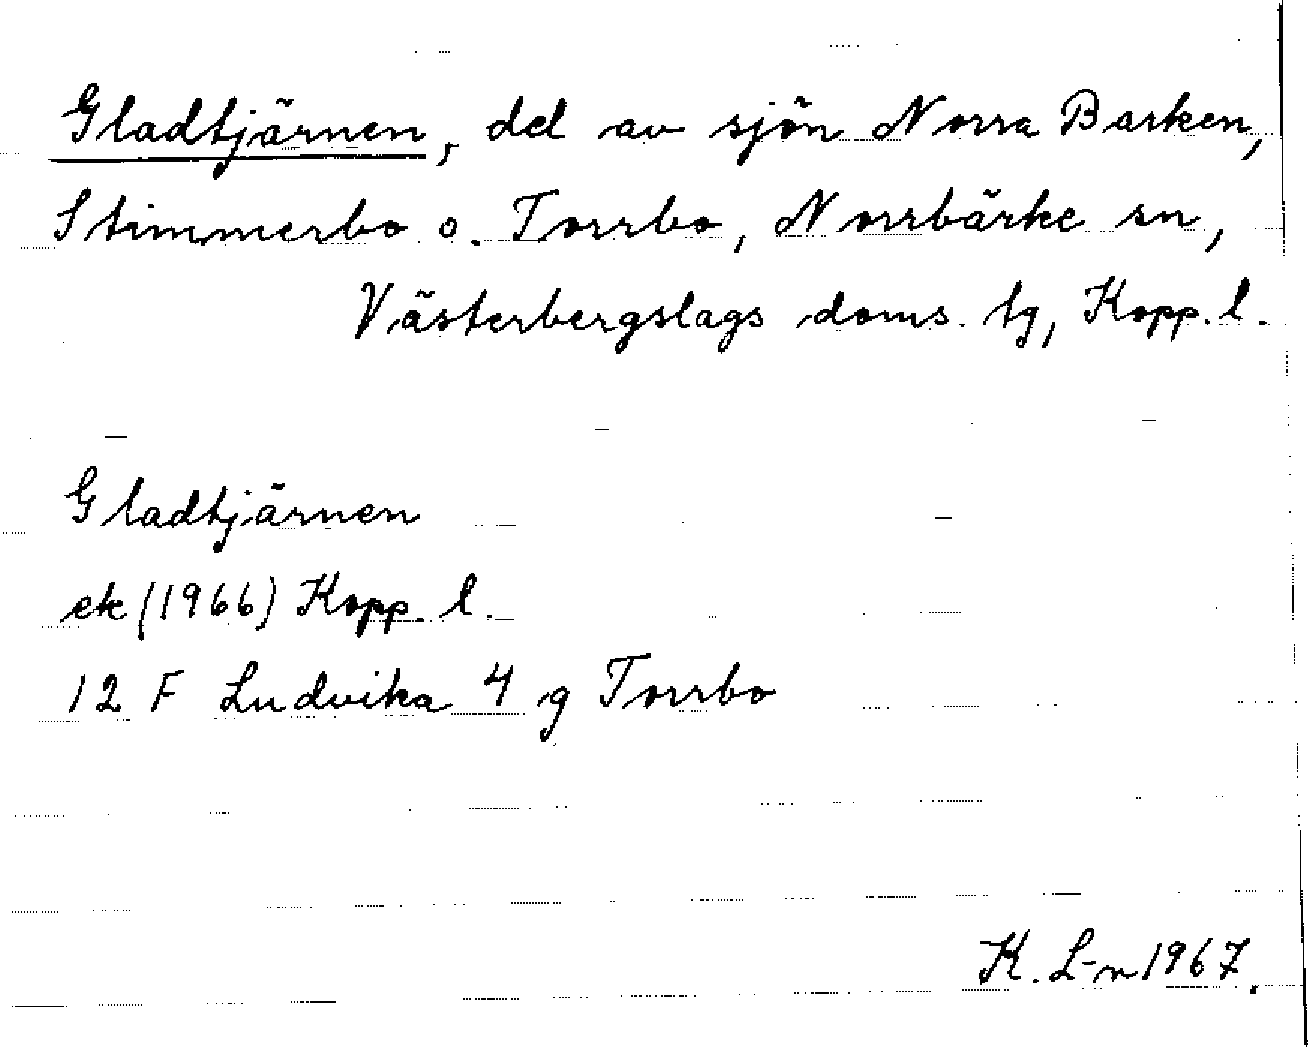 Gladtjärnen, del av sjön Norra Barken,
Stimmerbo o. Torrbo, Norrbärke sn,
Västerbergslags doms. tg, Kopp. l.
Gladtjärnen
ek (1966) Kopp. l.
12 F Ludvika 4 g Torrbo
K. L-n 1967.